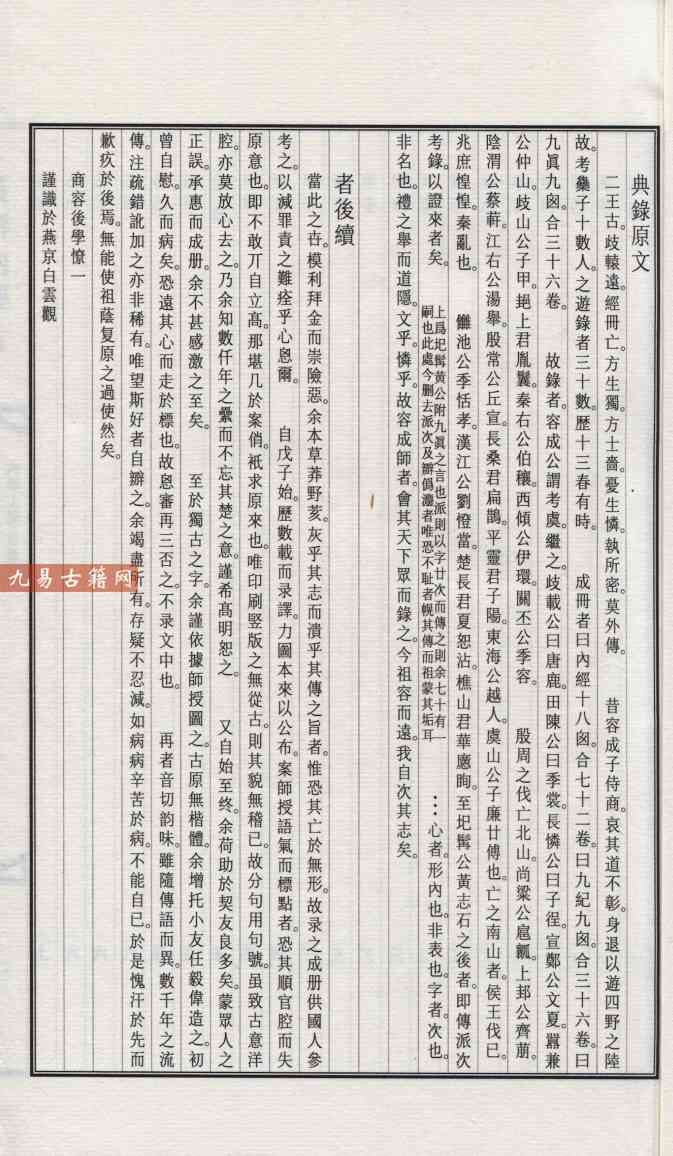 典錄原文
二王古。歧轅遠。經冊亡。方生獨。方士嗇。憂生憐。執所密。莫外傳。 昔容成子侍商。哀其道不彰。身退以遊四野之陸
故。考彝子十數人。之遊錄者三十數。歷十三春有時。 成冊者曰內經十八囪。合七十二卷。曰九紀九囪。合三十六卷。曰
九眞九囪。合三十六卷。 故錄者。容成公謂考虞。繼之。歧載公曰唐鹿。田陳公曰季裳。長憐公曰子徎。宣鄭公文夏。嚚兼
公仲山。歧山公子甲。郒上君胤鬟。秦右公伯穰。西傾公伊環。關丕公季容。 殷周之伐。亡北山。尚梁公扈瓤。上邽公齊萠。
陰渭公蔡蘚。江右公湯舉。殷常公丘宣。長桑君扁鵲。平靈君子陽。東海公越人。虞山公子廉廿傅也。亡之南山者。侯王伐已。
兆庶惶惶。秦亂也。 雝池公季恬孝。漢江公劉憕當。楚長君夏恕沾。樵山君華廮昫。至圯髯公黃志石之後者。即傳派次
考錄。以證來者矣。 上爲圯髯黃公附九眞之言也派則以字廿次而傳之則余七十有一
嗣也此處今刪去派次及辦僞灋者唯恐不耻者幌其傳而祖蒙其垢耳
…心者。形內也。非表也。字者。次也。
非名也。禮之舉而道隱。文乎。憐乎。故容成師者。會其天下眾而錄之。今祖容而遠。我自次其志矣。
者後續
當此之旹。模利拜金而崇險惡。余本草莽野荄。灰乎其志而潰乎其傳之旨者。惟恐其亡於無形。故录之成册供國人參
考之。以減罪責之難痊乎心恖爾。 自戊子始。歷數載而录譯。力圖本來以公布。案師授語氣而標點者。恐其順官腔而失
原意也。即不敢丌自立髙。那堪几於案俏。衹求原來也。唯印刷竪版之無從古。則其貌無稽已。故分句用句號。虽致古意洋
腔。亦莫放心去之。乃余知數仟年之纍而不忘其楚之意。謹希髙明恕之。 又自始至终。余荷助於契友良多矣。蒙眾人之
正誤。承惠而成册。余不甚感激之至矣。 至於獨古之字。余謹依據師授圖之。古原無楷體。余增托小友任毅偉造之。初
曾自慰。久而病矣。恐遠其心而走於標也。故恖審再三否之。不录文中也。 再者音切韵味。雖隨傳語而異。數千年之流
傳。注疏錯訛加之亦非稀有。唯望斯好者自辦之。余竭盡所有。存疑不忍減。如病病辛苦於病。不能自已。於是愧汗於先而
歉疚於後焉。無能使祖蔭复原之過使然矣。
商容後學憭一
謹識於燕京白雲觀
九易古籍网